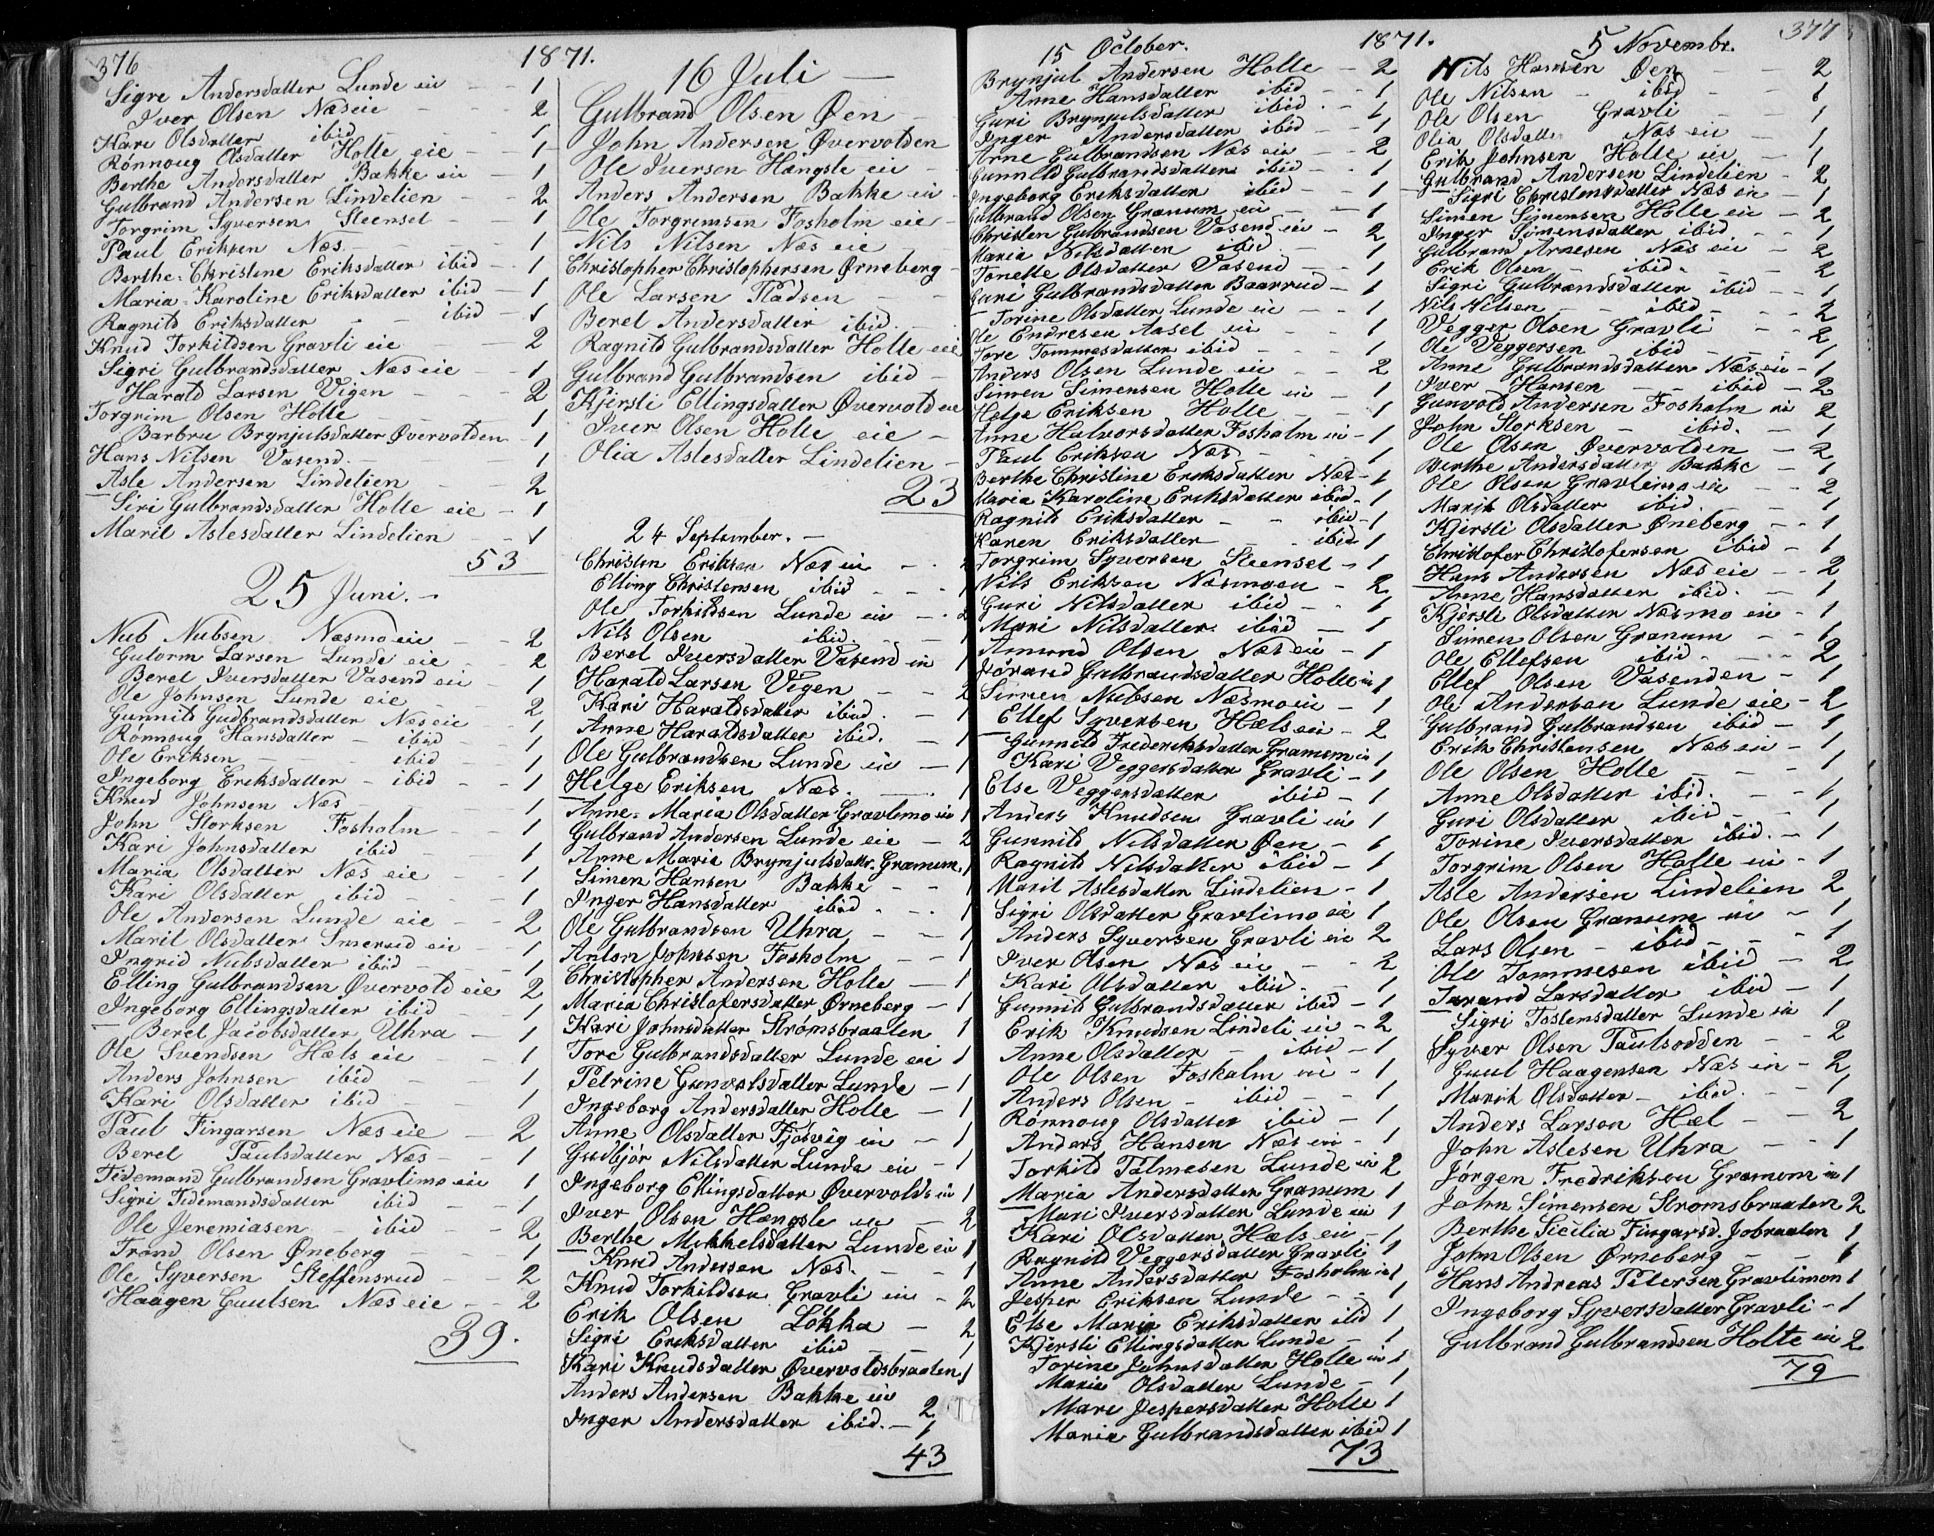 376
1871.
Sigre Andersdatter Lunde eie - - 1
Iver Olsen Næs eie - - 2
Kari Olsdatter ibid - - 1
Rönnoug Olsdatter Holte eie - 1
Berthe Andersdatter Bakke eie - 1
Gulbrand Andersen Lindelien - - 2
Torgrim Syversen Steenset - - 1
Paul Eriksen Næs. - - 1
Berthe-Christine Eriksdatter ibid - 1
Maria-Karoline Eriksdatter ibid - 1
Ragnild Eriksdatter - - ibid - 1
Knud Torkildsen Gravli eie - - 2
Sigri Gulbrandsdatter Næs eie - - 1
Harald Larsen Vigen - - 2
Torgrim Olsen Holte - - 1
Barbru Brynjulsdatter Øvervolden - 1
Hans Nilsen Vasend. - - 1
Asle Andersen Lindelien - - 2
Siri Gulbrandsdatter Holte eie - 1
Marit Aslesdatter Lindelien - - 1
53
25 Juni. -
Nub Nubsen Næsmo eie - - 2
Gutorm Larsen Lunde eie - 2
Beret Iversdatter Vasend eie - 1
Ole Johnsen Lunde eie - - 2
Gunnild Gudbrandsdatter Næs eie 1
Rönnoug Hansdatter - ibid - 1
Ole Eriksen - ibid 1
Ingeborg Eriksdatter - ibid - - 1
Knud Johnsen Næs - - 1
John Storksen Fosholm - - 1
Kari Johnsdatter ibid - 1
Maria Olsdatter Næs eie - - 1
Kari Olsdatter ibid - - 1
Ole Andersen Lunde eie - - 2
Marit Olsdatter Smerud eie - - 1
Ingrid Nubsdatter ibid - - 1
Elling Gulbrandsen Øvervold eie 2
Ingeborg Ellingsdatter ibid 1
Beret Jacobsdatter Uhra - 1
Ole Svendsen Hæls eie - - 1
Anders Johnsen ibid - - 1
Kari Olsdatter ibid - - 1
Paul Fingarsen Næs eie - 2
Beret Paulsdatter Næs - - 1
Tidemand Gulbrandsen Gravlimo eie 1
Sigri Tidemandsdatter ibid - - 1
Ole Jeremiasen - ibid - - 2
Trond Olsen Øneberg - - 1
Ole Syversen Steffensrud - - 2
Haagen Guulsen Næs eie - - 2
39.
16 Juli -
Gulbrand Olsen Øen -
John Andersen Øvervolden
Ole Iversen Hængsle eie -
Anders Andersen Bakke eie -
Ole Torgrimsen Fosholm eie -
Nils Nilsen Næs eie
Christopher Christophersen Ørneberg -
Ole Larsen Pladsen - -
Beret Andersdatter ibid. - -
Ragnild Gulbrandsdatter Holte eie
Gulbrand Gulbrandsen ibid -
Kjersti Ellingsdatter Øvervold eie
Iver Olsen Holte eie -
Olia Aslesdatter Lindelien -
23
24 September. -
Christen Eriksen Næs eie - -
Elling Christensen ibid - -
Ole Torkildsen Lunde eie - - 2
Nils Olsen ibid. - - 1
Beret Iversdatter Vasend eie 1
Harald Larsen Vigen - - 2
Kari Haraldsdatter ibid. - 1
Anne Haraldsdatter ibid. - 1
Ole Gulbrandsen Lunde eie - 1
Helge Eriksen Næs. - 1
Anne-Maria Olsdatter Gravlimo eie 1
Gulbrand Andersen Lunde eie - 2
Anne Marie Brynjulsdattr. Gramum, 1
Simen Hansen Bakke - - 1
Inger Hansdatter ibid - - 1
Ole Gulbrandsen Uhra - - 1
Anton Johnsen Fosholm - - 1
Christopher Andersen Holte - 1
Maria Christofersdatter Ørneberg - 1
Kari Johnsdatter Strömsbraaten 1
Tore Gulbrandsdatter Lunde eie 1
Petrine Gunvolsdatter Lunde - 1
Ingeborg Andersdatter Holte - 1
Anne Olsdatter Tjösvig eie - 1
Gudbjör Nilsdatter Lunde eie - 1
Ingeborg Ellingsdatter Øvervolds eie 1
Iver Olsen Hængsle eie - 2
Berthe Mikkelsdatter Lunde eie 1
Knud Andersen Næs. - - 1
Knud Torkildsen Gravli eie - 2
Erik Olsen Lökka - 2
Sigri Eriksdatter ibid - - 1
Kari Knudsdatter Øvervoldsbraaten, 1
Anders Andersen Bakke eie 2
Inger Andersdatter ibid. - 1
43
15 October. 1871.
Brynjul Andersen Holte - 2
Anne Hansdatter ibid - - 1
Guri Brynjulsdatter ibid. - 1
Inger Andersdatter ibid - - 1
Arne Gulbrandsen Næs eie - - 2
Gunnild Gulbrandsdatter ibid - 1
Ingeborg Eriksdatter ibid - 1
Gulbrand Olsen Granum eie - - 1
Christen Gulbrandsen Vasend eie - 2
Maria Nilsdatter ibid. - 1
Tonette Olsdatter Vasend - - 1
Guri Gulbrandsdatter Baarrud - 1
Torine Olsdatter Lunde eie - - 1
Ole Endresen Aaset eie - - 1
Tore Tommesdatter ibid - - 1
Anders Olsen Lunde eie - - 2
Simen Simensen Holte eie - 1
Helge Eriksen Holte - - 1
Anne Halvorsdatter Fosholm eie - 1
Paul Eriksen Næs - - - 1
Berthe Christine Eriksdatter Næs - 1
Maria Karoline Eriksdatter ibid. 1
Ragnild Eriksdatter - - ibid - 1
Karen Eriksdatter - - ibid 1
Torgrim Syversen Steenset - 1
Nils Eriksen Næsmoen - 2
Guri Nilsdatter ibid - - 1
Mari Nilsdatter. ibid - 1
Amund Olsen Næs eie - 1
Jörand Gulbrandsdatter Holte eie 1
Simen Nubsen Næsmo eie - 1
Ellef Syversen Hæls eie - 2
Gunnild Frederiksdatter Gramum eie 1
Kari Veggersdatter Gravli - 1
Else Veggersdatter ibid - 1
Anders Knudsen Gravli eie 1
Gunnild Nilsdatter Øen - 1
Ragnild Nilsdatter ibid - 1
Marit Aslesdatter Lindelien - 1
Sigri Olsdatter Gravlimo eie 1
Anders Syversen Gravli eie 2
Iver Olsen Næs eie - - 2
Kari Olsdatter ibid. - 1
Gunnild Gulbrandsdatter ibid - 1
Erik Knudsen Lindeli eie - 2
Anne Olsdatter - ibid - 1
Ole Olsen Fosholm eie - 1
Anders Olsen - ibid - - 1
Rönnoug Olsdatter ibid - 1
Anders Hansen Næs eie - 1
Torkild Palmesen Lunde eie 2
Maria Andersdatter Gramum 1
Mari Iversdatter Lunde eie 1
Kari Olsdatter Hæls eie - 1
Ragnild Veggersdatter Gravli 1
Anne Andersdatter Fosholm eie 1
Jesper Eriksen Lunde - - 1
Else Maria Eriksdatter ibid 1
Kjersti Ellingsdatter Lunde - 1
Torine Johnsdatter Holte eie 1
Maria Olsdatter Lunde - 1
Mari Jespersdatter Holte 1
Maria Gulbrandsdatter ibid 1
73
5 Novembr. 377
Nils Hansen Øen - - 2
Ole Nilsen - ibid - 1
Ole Olsen Gravli - 1
Olia Olsdatter Næs eie - 1
Erik Johnsen Holte eie - 1
Gulbrand Andersen Lindelien - 2
Sigri Christensdatter Næs eie 1
Simen Simensen Holte eie - 2
Inger Simensdatter ibid - - 1
Gulbram Arnesen Næs eie - 2
Erik Olsen - ibid. - 2
Sigri Gulbrandsdatter ibid - 1
Nils Nilsen - - ibid. - - 2
Vegger Olsen Gravli - - 2
Ole Veggersen ibid - - 1
Anne Gulbrandsdatter Næs eie - 1
Iver Hansen - - ibid - 2
Gunvold Andersen Fosholm eie 2
John Storksen - ibid. - 1
Ole Olsen Øvervolden - 2
Berthe Andersdatter Bakke - 1
Ole Olsen Gravlimo eie - 2
Marit Olsdatter ibid. - 1
Kjersti Olsdatter Øneberg - - 1
Christofer Christofersen ibid - 1
Hans Andersen Næs eie - - 2
Anne Hansdatter ibid. - 1
Kjersti Olsdatter Næsmo eie - 1
Simen Olsen Granum - - 1
Ole Ellefsen ibid - - 2
Ellef Olsen Vasenden - 1
Ole Andersen Lunde eie - 2
Gulbrand Gulbrandsen ibid - 1
Erik Christensen Næs eie - 1
Ole Olsen Holte - - 1
Anne Olsdatter ibid. - - 1
Guri Olsdatter ibid - - 1
Torine Iversdatter ibid. - 1
Torgrim Olsen Holte eie - 1
Asle Andersen Lindelien 2
Ole Olsen Granum eie - 1
Lars Olsen - ibid - - 1
Ole Tommesen ibid - 2
Jarand Larsdatter ibid - 1
Sigri Tostensdatter Lunde eie 1
Syver Olsen Paulsodden - - 2
Guul Haagensen Næs eie - 2
Marit Olsdatter - ibid. - 1
Anders Larsen Hæl - - 2
John Aslesen Uhra - - 1
Jørgen Fredriksen Gramum eie 1
John Simensen Stromsbraaten 2
Berthe Sicilia Fingarsd. Jobraaten 1
John Olsen Ørneberg - - 1
Hans Andreas Petersen Gravlimoen 1
Ingeborg Syversdatter Gravli - 1
Gulbrand Gulbrandsen Holte eie 2
79